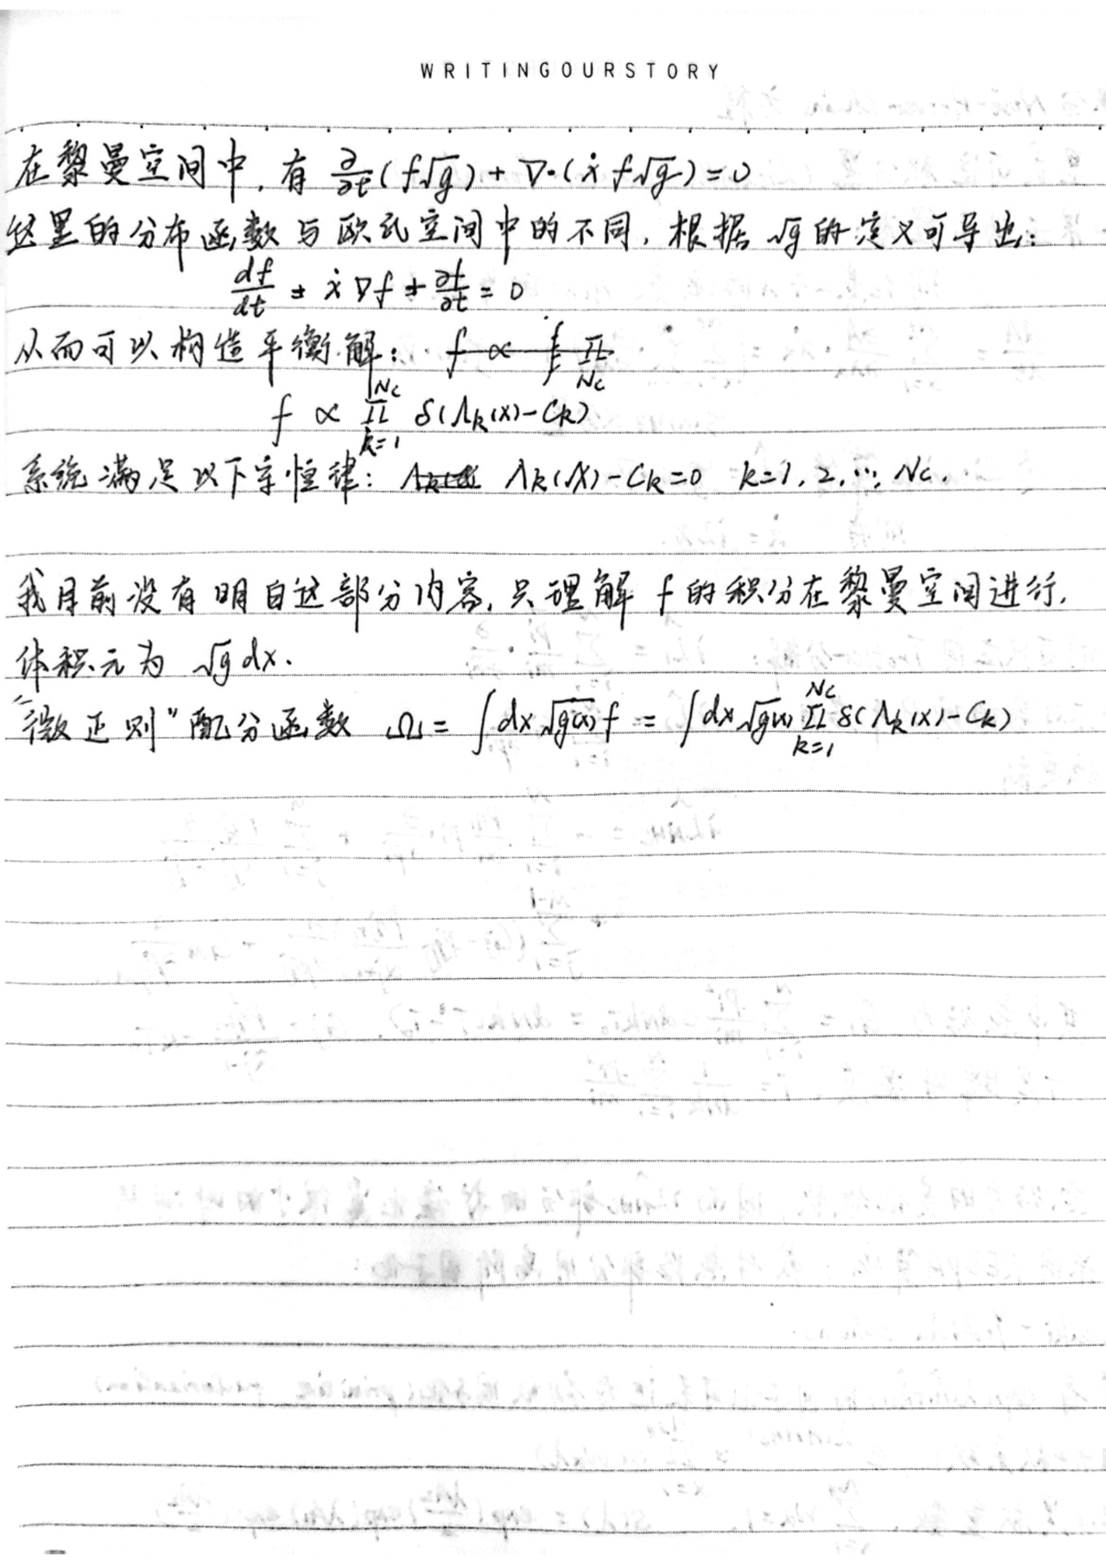 WRITINGOURSTORY
在黎曼空间中，有 ∂/∂t(f√g) + ∇·(ẋ f√g) = 0
这里的分布函数与欧氏空间中的不同，根据 √g 的定义可导出：
df/dt = ẋ∇f + ∂f/∂t = 0
从而可以构造平衡解：
f ∝ ∏_{k=1}^{Nc} δ(Λk(x)-Ck)
系统满足以下守恒律： Λk(x)-Ck=0 k=1, 2, …, Nc.
我目前没有明白这部分内容，只理解 f 的积分在黎曼空间进行，
体积元为 √g dx.
“微正则”配分函数 Ω = ∫dx√g(x) f = ∫dx√g(x) ∏_{k=1}^{Nc} δ(Λk(x)-Ck)